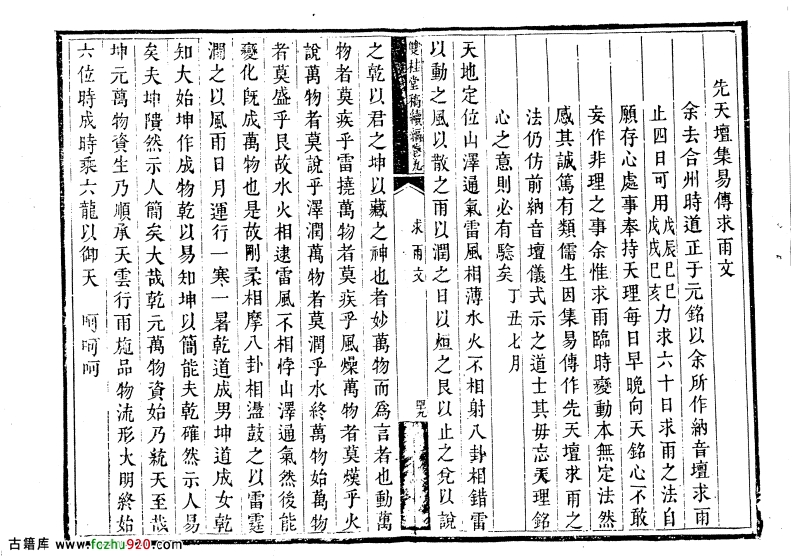 先天壇集易傳求雨文
余去合州時道正于元銘以余所作納音壇求雨
止四日可用戊辰己巳戊戌己亥力求六十日求雨之法自
願存心處事奉持天理每日早晩向天銘心不敢
妄作非理之事余惟求雨臨時變動本無定法然
感其誠篤有類儒生因集易傳作先天壇求雨之
法仍仿前納音壇儀式示之道士其毋忘天理銘
心之意則必有驗矣丁丑七月
天地定位山澤通氣雷風相薄水火不相射八卦相錯雷
以動之風以散之雨以潤之日以烜之艮以止之兌以說
雙桂堂稿續編卷九
求雨文
四九
之乾以君之坤以藏之神也者妙萬物而爲言者也動萬
物者莫疾乎雷撓萬物者莫疾乎風燥萬物者莫熯乎火
說萬物者莫說乎澤潤萬物者莫潤乎水終萬物始萬物
者莫盛乎艮故水火相逮雷風不相悖山澤通氣然後能
變化旣成萬物也是故剛柔相摩八卦相盪鼓之以雷霆
潤之以風雨日月運行一寒一暑乾道成男坤道成女乾
知大始坤作成物乾以易知坤以簡能夫乾確然示人易
矣夫坤隤然示人簡矣大哉乾元萬物資始乃統天至哉
坤元萬物資生乃順承天雲行雨施品物流形大明終始
六位時成時乘六龍以御天 呵呵呵
古籍库 www.fczhu920.com